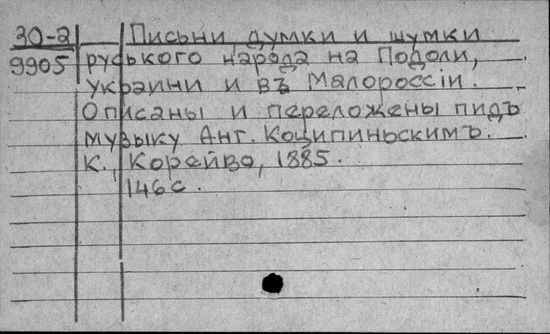 30-2 Письни, думки и шумки
9905 руського народа на Подоли,
украини и въ Малороссіи.
Описаны и переложены пидъ
музыку Ант. Коципиньскимъ.
К., Корейво, 1885.
146с.